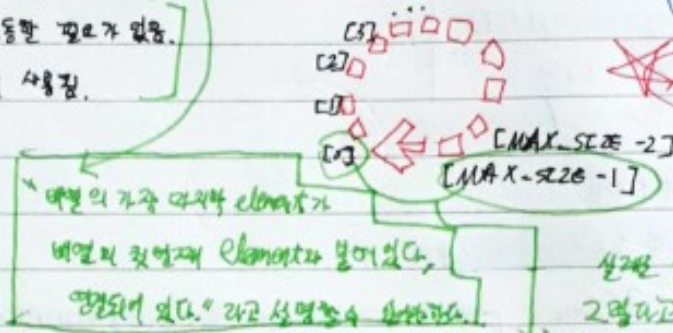 동할 필요가 없음.
사용됨.
...
[3]
[2]
[1]
[0]
[MAX_SIZE -2]
[MAX_SIZE -1]
"배열의 가장 마지막 element가
배열의 첫번째 element와 붙어있다,
연결되어 있다." 라고 설명할 수
실제
그렇다고